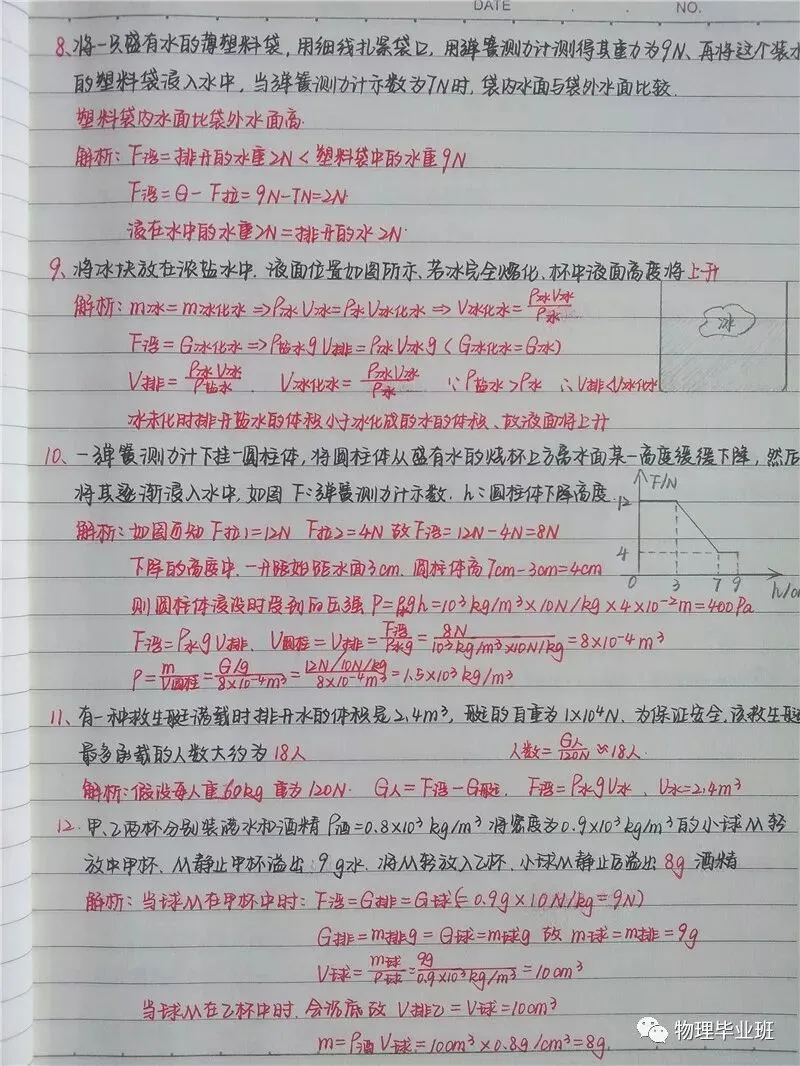 DATE . . NO.
8、将一只盛有水的薄塑料袋,用细线扎紧袋口,用弹簧测力计测得其重力为9N、再将这个装水
的塑料袋浸入水中,当弹簧测力计示数为7N时,袋内水面与袋外水面比较.
塑料袋内水面比袋外水面高.
解析:F浮=排开的水重2N<塑料袋中的水重9N
F浮=G-F拉=9N-7N=2N
浸在水中的水重2N=排开的水2N.
9、将冰块放在浓盐水中.液面位置如图所示、若冰完全熔化、杯中液面高度将上升
解析:m冰=m冰化水⇒ρ冰V冰=ρ水V冰化水⇒V冰化水=ρ冰V冰/ρ水
冰
F浮=G冰化水⇒ρ盐水gV排=ρ冰V冰g(G冰化水=G冰)
V排=ρ冰V冰/ρ盐水 . V冰化水=ρ冰V冰/ρ水 ∵ρ盐水>ρ水 ∴V排<V冰化水
冰未化时排开盐水的体积小于冰化成的水的体积、故液面将上升
10、一弹簧测力计下挂一圆柱体,将圆柱体从盛有水的烧杯上方离水面某一高度缓缓下降,然后
将其逐渐浸入水中,如图 F:弹簧测力计示数. h:圆柱体下降高度.
F/N
12
4
0 3 7 9 h/cm
解析:如图可知 F拉1=12N F拉2=4N 故F浮=12N-4N=8N
下降的高度中.一开始距水面3cm.圆柱体高7cm-3cm=4cm
则圆柱体浸没时受到的压强P=ρgh=10³kg/m³×10N/kg×4×10⁻²m=400Pa
F浮=ρ水gV排、V圆柱=V排=F浮/ρ水g=8N/10³kg/m³×10N/kg=8×10⁻⁴m³
ρ=m/V圆柱=G/g/8×10⁻⁴m³=12N/10N/kg/8×10⁻⁴m³=1.5×10³kg/m³
11、有一种救生艇满载时排开水的体积是2.4m³,艇的自重为1×10⁴N、为保证安全,该救生艇
最多承载的人数大约为18人 人数=G人/120N≈18人.
解析:假设每人重60kg 重为120N. G人=F浮-G艇、F浮=ρ水gV水、V水=2.4m³
12.甲、乙两杯分别装满水和酒精ρ酒=0.8×10³kg/m³将密度为0.9×10³kg/m³的小球M轻
放中甲杯、M静止甲杯溢出9g水、将M轻放入乙杯、小球M静止后溢出8g酒精
解析:当球M在甲杯中时:F浮=G排=G球(=0.9g×10N/kg=9N)
G排=m排g=G球=m球g 故m球=m排=9g
V球=m球/ρ球=9g/0.9×10³kg/m³=10cm³
当球M在乙杯中时.会沉底故V排乙=V球=10cm³
m=ρ酒V球=10cm³×0.8g/cm³=8g.
物理毕业班